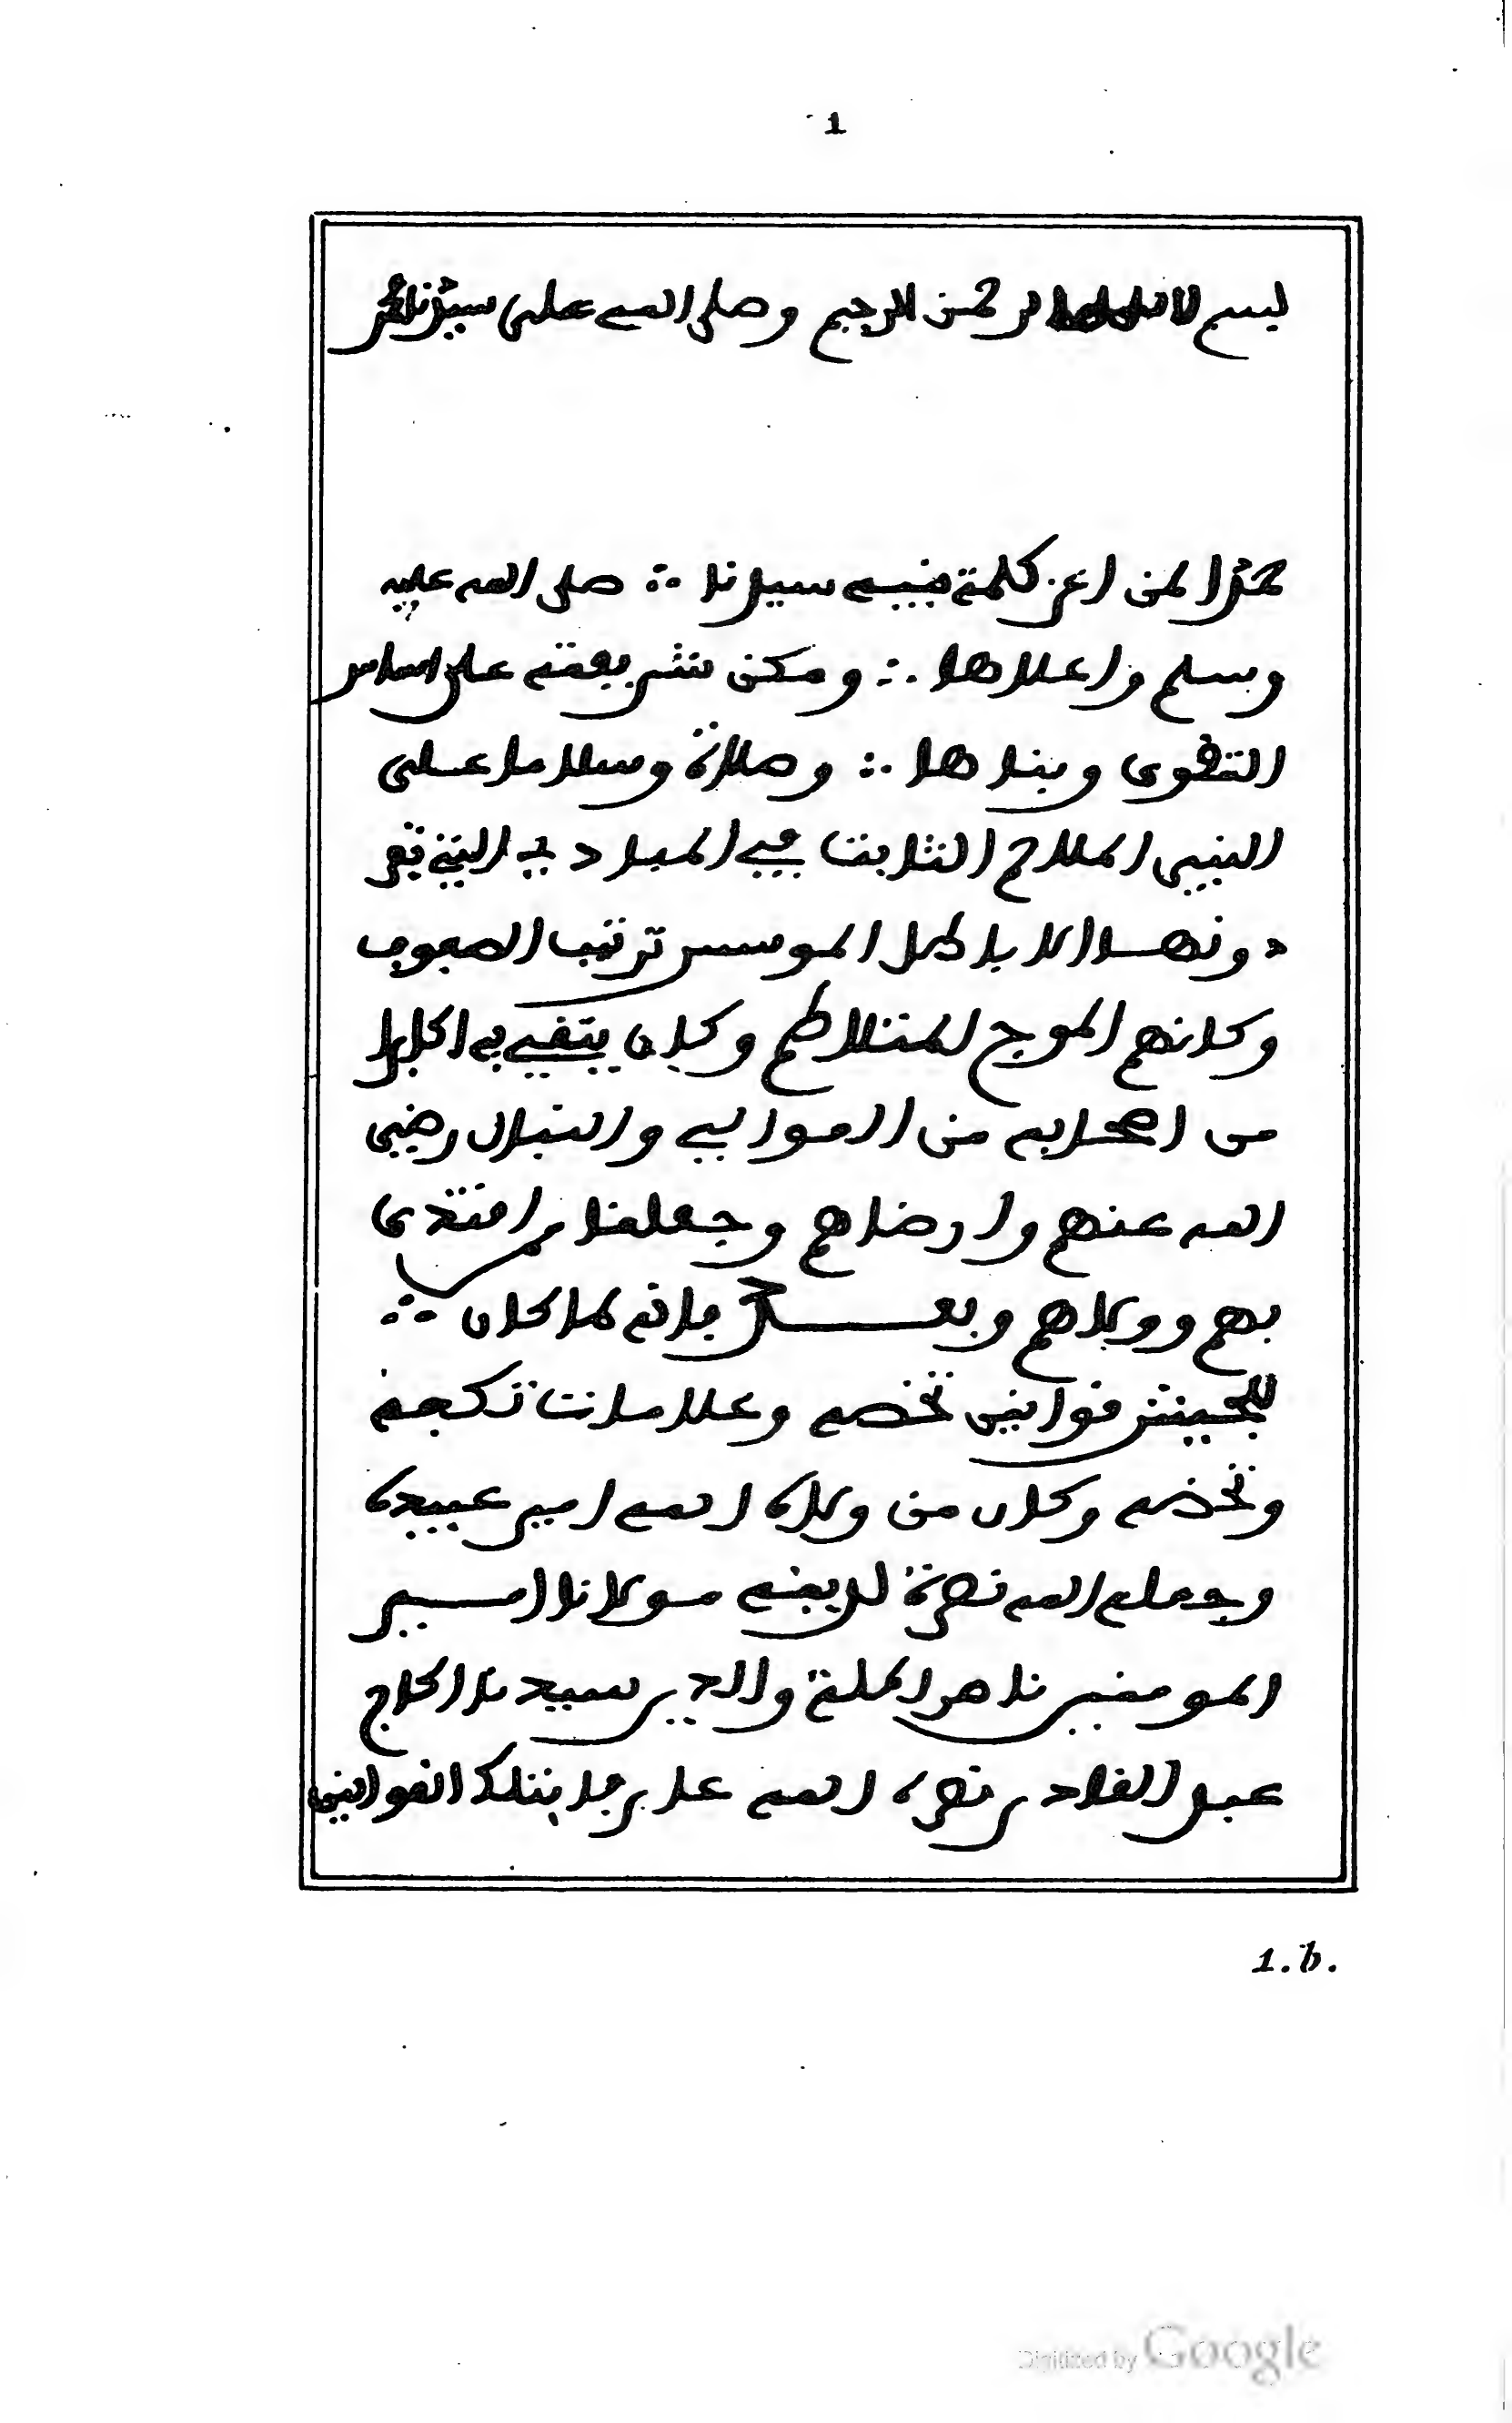 1
بسم الله الرحمن الرحيم وصلى الله على سيدنا محمد
حمدا لمن اعز كلمة نبيه سيدنا ∴ صلى الله عليه
وسلم واعلاها ∴ ومكن شريعته على اساس
التقوى وبناها ∴ وصلاة وسلاما على
النبي الملاح الثابت في المبادي التي تقر
دونها الاباطل الموسس ترتيب الصفوف
وكانهم الموج المتلاطم وكان يتقي به
من اصحابه من الموالي والنبال رضي
الله عنهم وارضاهم وجعلنا ممن اقتدى
بهم ووالاهم وبعد فانه لما كان ∴
للجيش قوانين تخصه وعلامات تكجه
وتخضه وكان من ولاه الله امير عبيده
وجعله الله نصرة لدينه مولانا امير
المومنين ناصر الملة والدين سيدنا الحاج
عبد القادر نصره الله على بتلك القوانين
1.b.
Digitized by Google